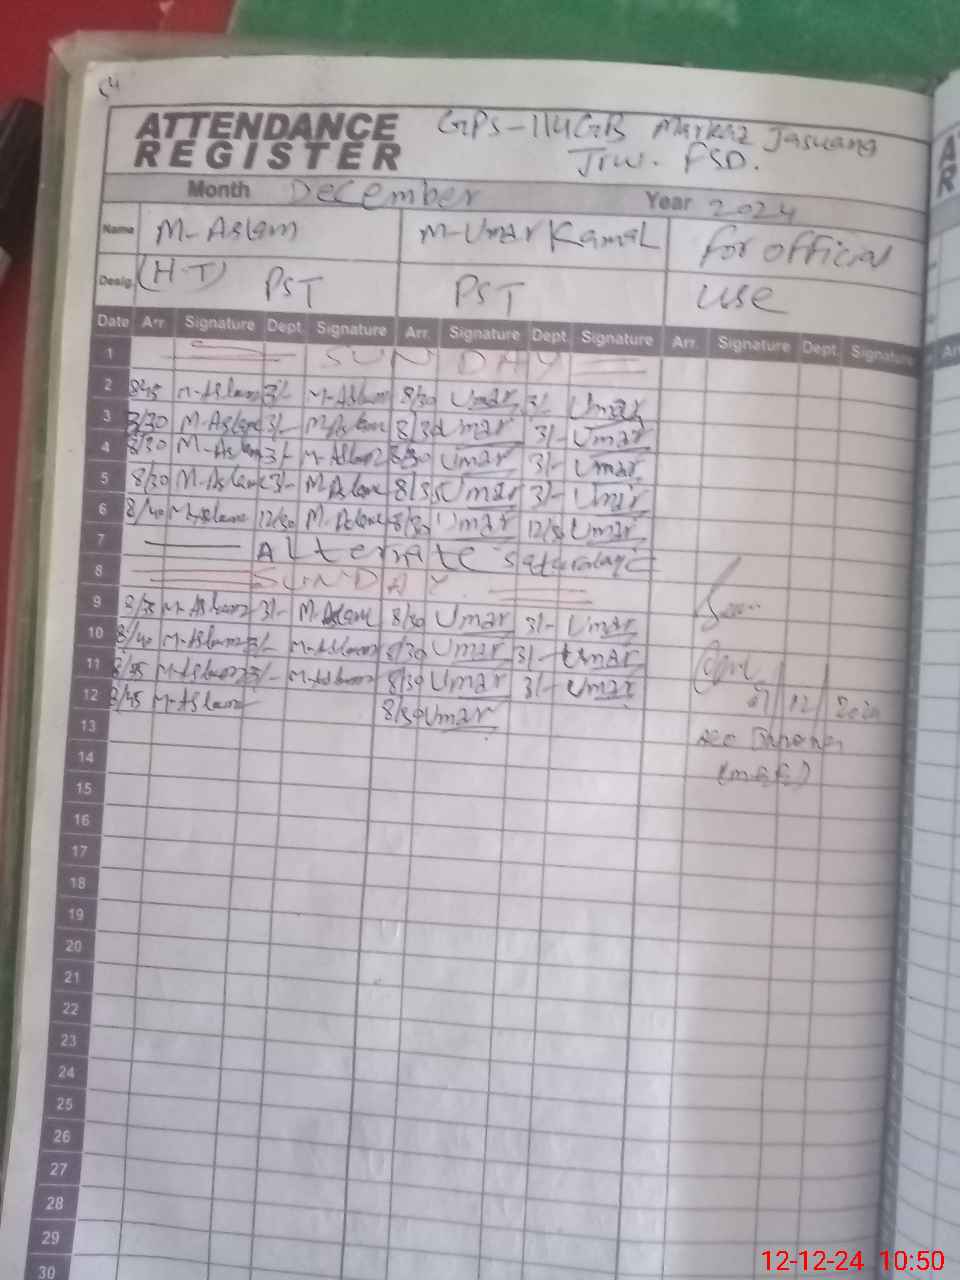 ATTENDANCE REGISTER
GPS-114GB Markaz Jasuang
Jrw. FSD.
Month December Year 2024
Name M-Aslam M-Umar Kamal For official
Desig. (H-T) PST PST use
Date Arr. Signature Dept. Signature Arr. Signature Dept. Signature Arr. Signature Dept. Signature
1 SUNDAY
2 8/45 M-Aslam 3/- M-Aslam 8/30 Umar 3/- Umar
3 8/30 M-Aslam 3/- M-Aslam 8/30 Umar 3/- Umar
4 8/30 M-Aslam 3/- M-Aslam 8/30 Umar 3/- Umar
5 8/30 M-Aslam 3/- M-Aslam 8/35 Umar 3/- Umar
6 8/40 M-Aslam 12/30 M-Aslam 8/30 Umar 12/30 Umar
7 Alternate Saturday
8 SUNDAY
9 8/35 M-Aslam 3/- M-Aslam 8/30 Umar 3/- Umar
10 8/40 M-Aslam 3/- M-Aslam 8/30 Umar 3/- Umar
11 8/35 M-Aslam 3/- M-Aslam 8/30 Umar 3/- Umar
12 8/45 M-Aslam 8/30 Umar
13
14
15
16
17
18
19
20
21
22
23
24
25
26
27
28
29
30
12-12-24 10:50